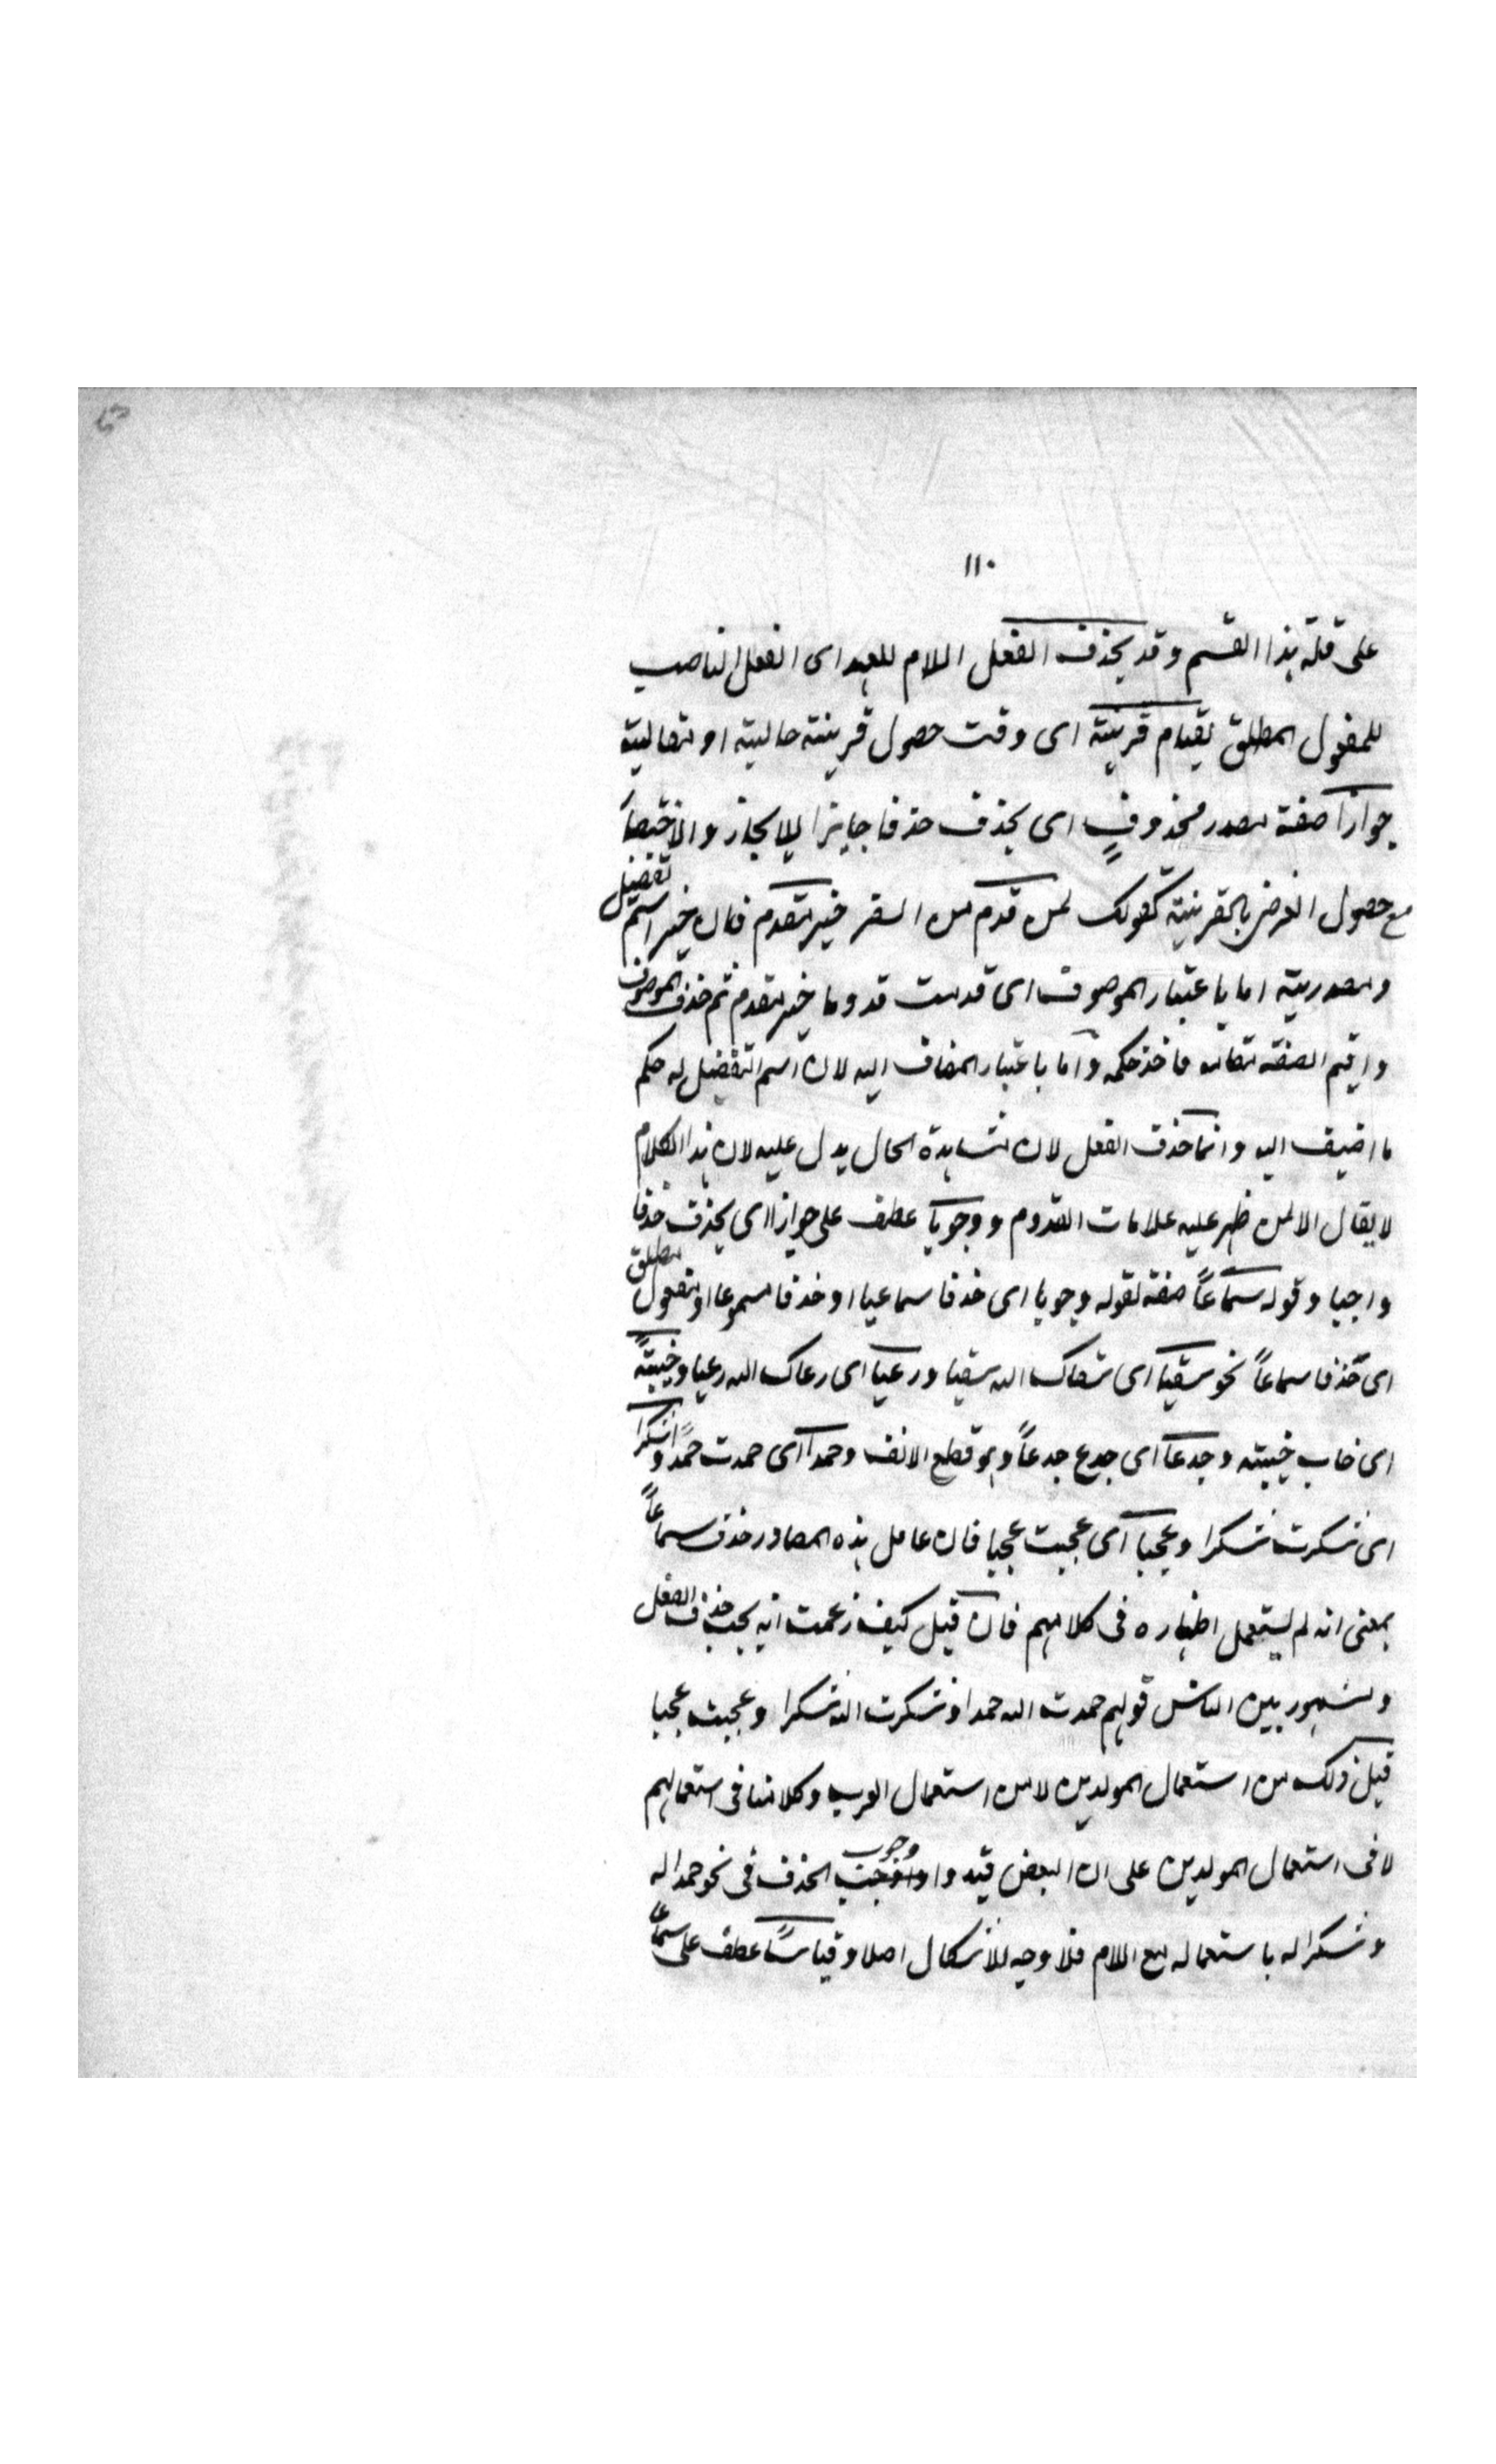 ١١٠
على قلة هذا القسم وقد يحذف الفعل اللام للعهد اى الفعل الناصب
للمفعول المطلق لقيام قرينة اى وقت حصول قرينة حالية او مقالية
جوازا صفة مصدر محذوفٍ اى يحذف حذفا جايزا للايجاز والاختصار
مع حصول الغرض بالقرينة كقولك لمن قدم من السفر خير مقدم فان خير اسم تفضيل
ومصدريته اما باعتبار الموصوف اى قدمت قدوما خير مقدم ثم حذف الموصوف
واقيم الصفة مقامه فاخذ حكمه واما باعتبار المضاف اليه لان اسم التفضيل له حكم
ما اضيف اليه وانما حذف الفعل لان مشاهدة الحال يدل عليه لان هذا الكلام
لا يقال الا لمن ظهر عليه علامات القدوم ووجوبا عطف على جوازا اى يحذف حذفا
واجبا وقوله سماعاً صفة لقوله وجوبا اى حذفا سماعيا او حذفا مسموعا او مفعول مطلق
اى حذفا سماعاً نحو سقيا اى سقاك الله سقيا ورعيا اى رعاك الله رعيا وخيبةً
اى خاب خيبته وجدعا اى جدع جدعاً وهو قطع الانف وحمدا اى حمدت حمدا وشكرا
اى شكرت شكرا وعجبا اى عجبت عجبا فان عامل هذه المصادر حذف سماعاً
بمعنى انه لم يستعمل اظهاره فى كلامهم فان قيل كيف زعمت انه يجب حذف الفعل
ومشهور بين الناس قولهم حمدت الله حمدا وشكرت الله شكرا وعجبت عجبا
قيل ذلك من استعمال المولدين لا من استعمال العرب وكلامنا فى استعمالهم
لا فى استعمال المولدين على ان البعض قيد وجوب الحذف فى نحو حمدا له
وشكرا له باستعماله مع اللام فلا وجه للاشكال اصلا وقياسًا عطف على سماعا